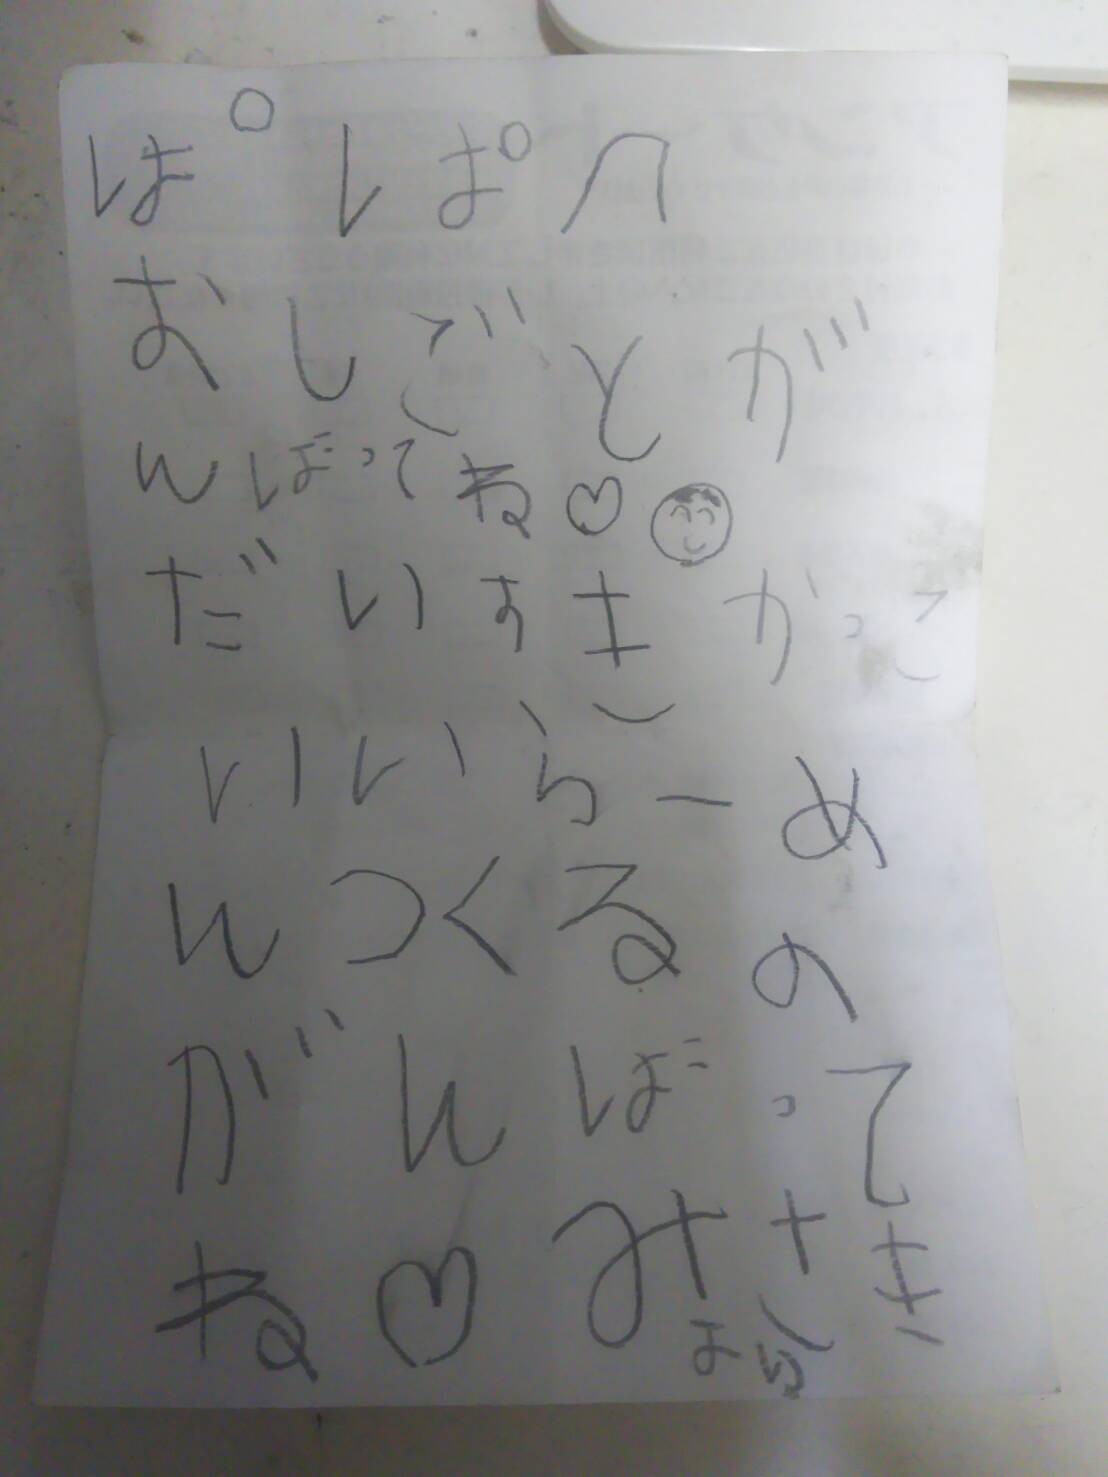 ぱぱへ
おしごとが
んばってね♡
だいすきかっこ
いいいらーめ
んつくるの
がんばって
ね♡みさき
より